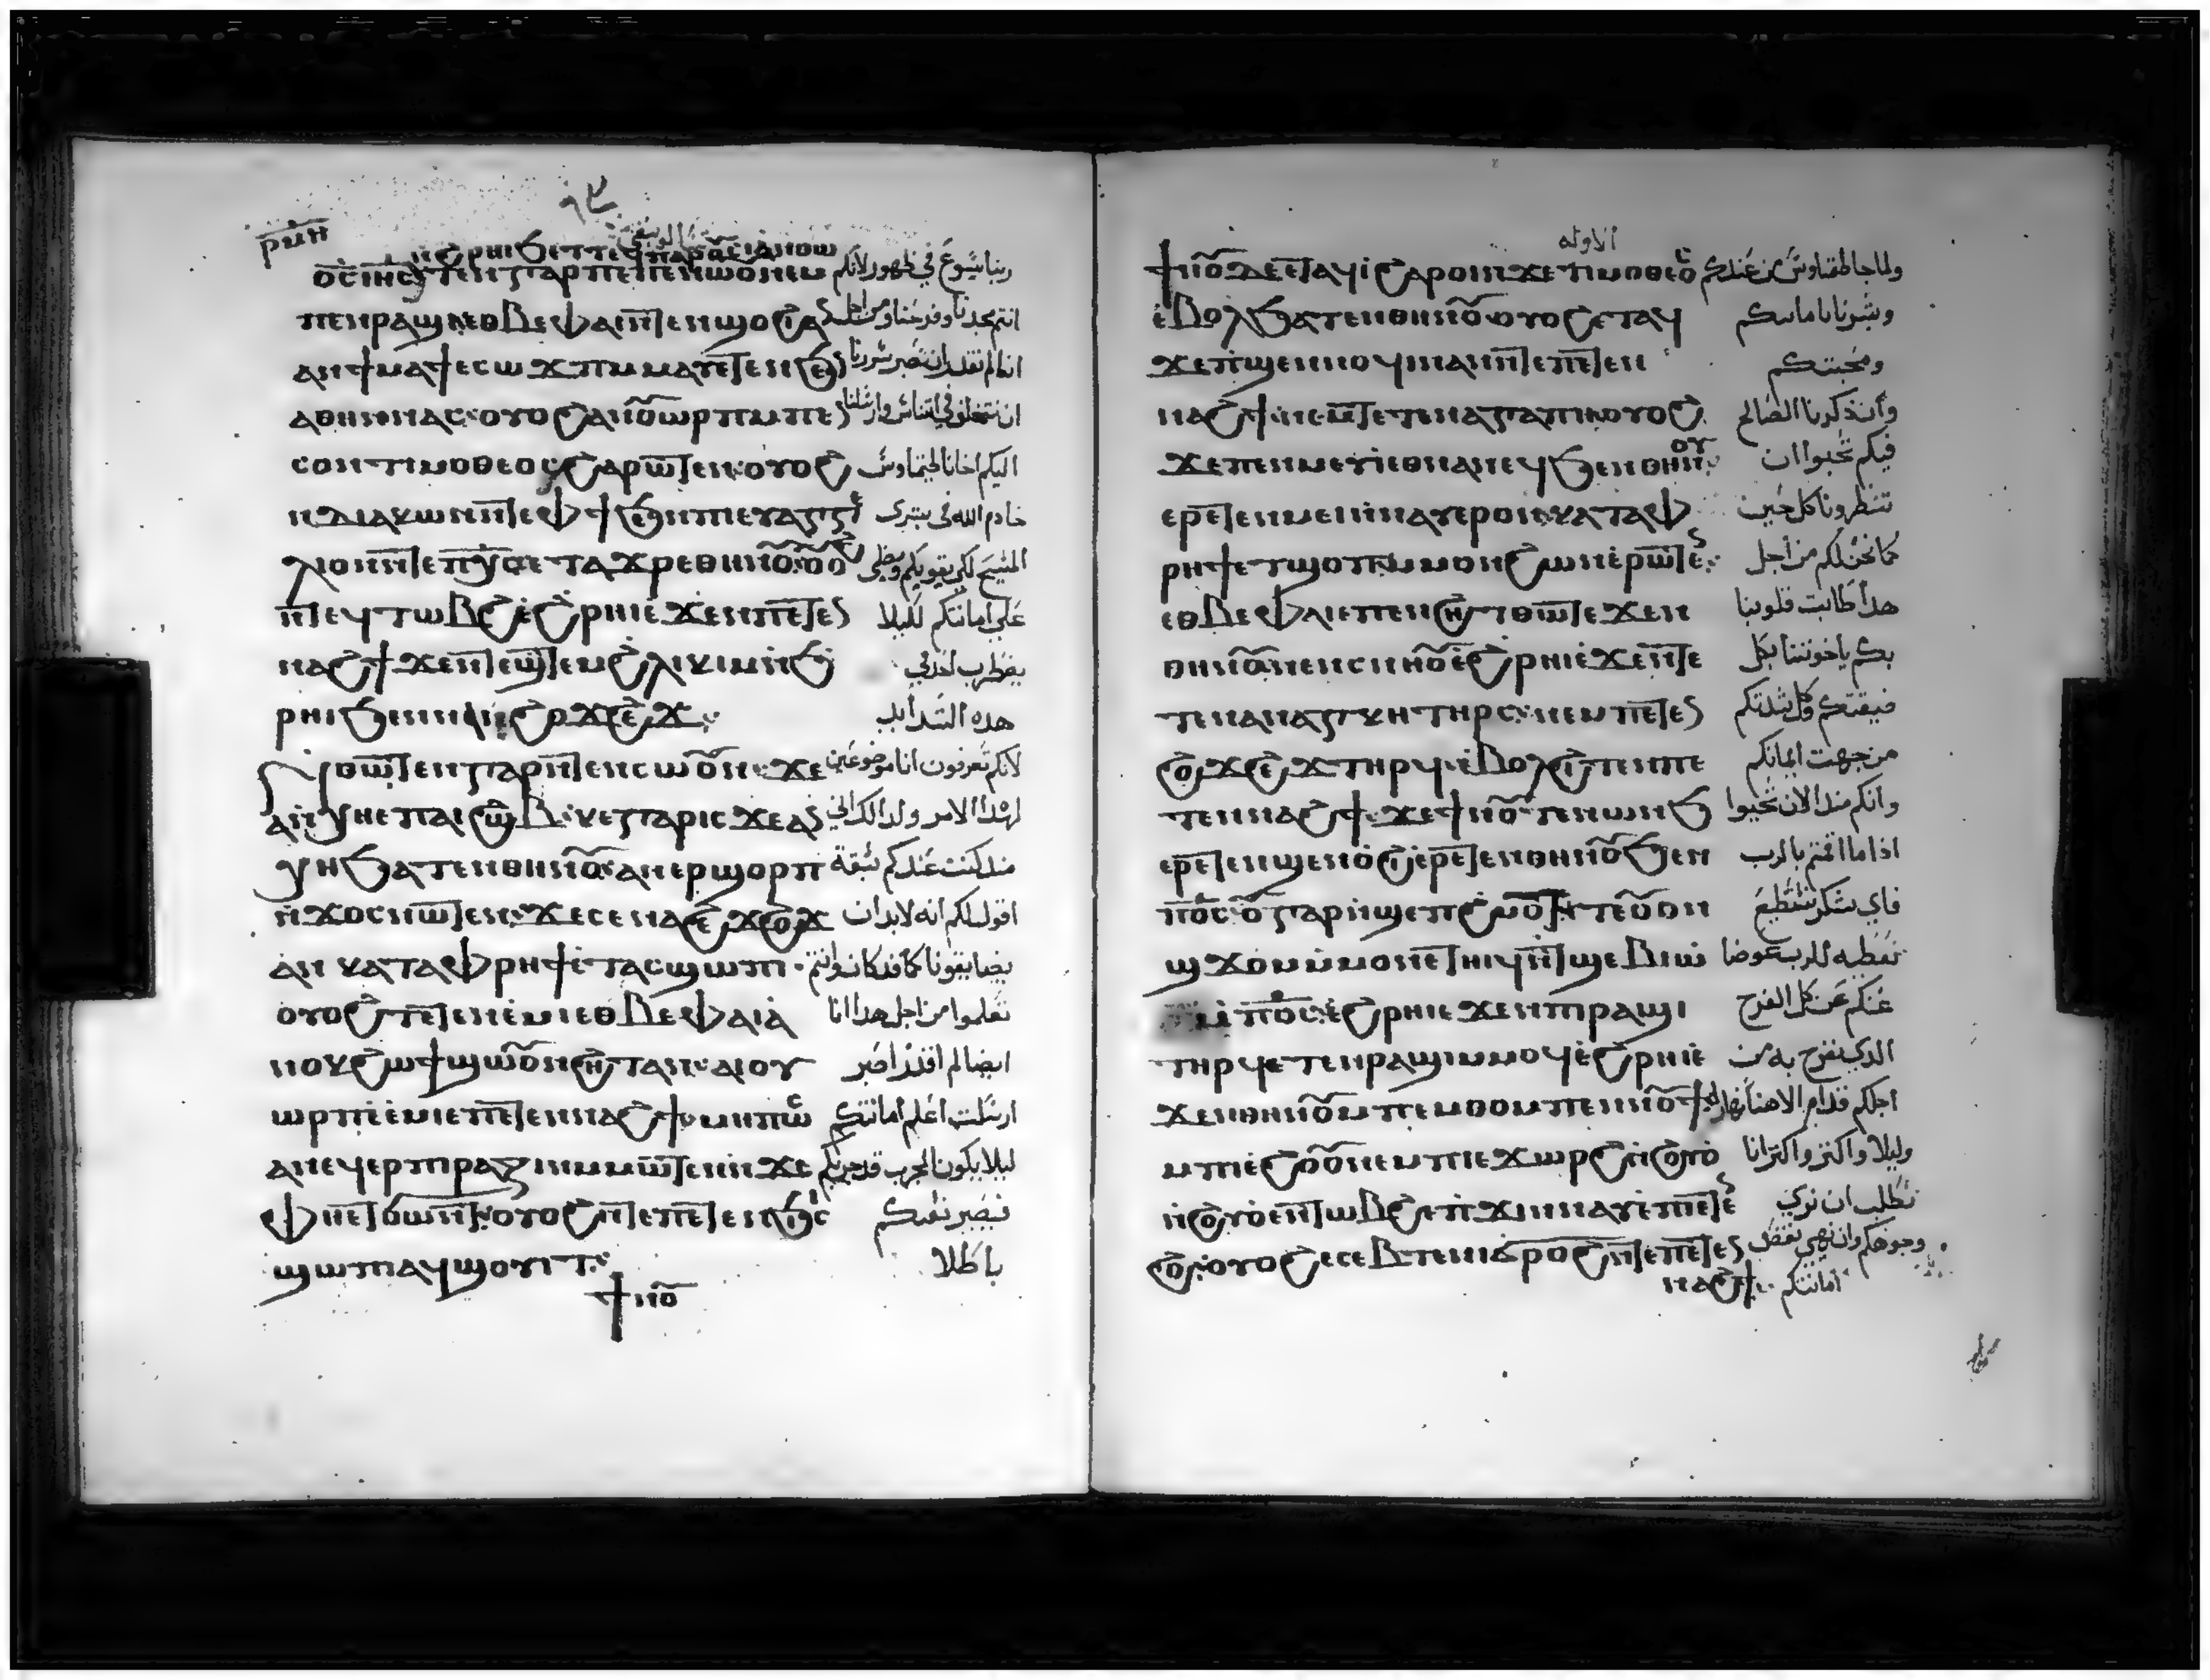 ⲣⲛⲏ
ⲟ̅ⲥ̅ ⲓⲏⲥ ⲛ̀ⲑⲱⲧⲉⲛ ⲅⲁⲣ ⲡⲉ ⲡⲉⲛⲱⲟⲩ ⲛⲉⲙ ربنا يسوع في ظهوره لانكم
ⲡⲉⲛⲣⲁϣⲓ ⲉⲑⲃⲉ ⲫⲁⲓ ⲛ̀ⲧⲉⲛϣⲟⲩϥⲁⲓ انتم مجدنا وفرحنا ومن اجل
ⲁⲛϯⲙⲁϯ ⲉⲥⲱϫⲡ ⲙ̀ⲙⲁⲩⲁⲧⲉⲛ ϧⲉⲛ انا لم نقدر ان نصبر سررنا
ⲁⲑⲏⲛⲛⲁⲥ ⲟⲩⲟϩ ⲁⲛⲟⲩⲱⲣⲡ ⲙ̀ⲡⲉ ان نتخلف في اتيناس وارسلنا
ⲥⲟⲛ ⲧⲓⲙⲟⲑⲉⲟⲥ ϩⲁⲣⲱⲧⲉⲛ ⲟⲩⲟϩ اليكم اخانا طيماتاوس
ⲛ̀ⲇⲓⲁⲕⲱⲛ ⲛ̀ⲧⲉ ⲫϯ ϧⲉⲛ ⲡⲓⲉⲩⲁⲅⲅⲉ خادم الله في بشرى
ⲗⲓⲟⲛ ⲛ̀ⲧⲉ ⲡⲭⲥ ⲉⲧⲁϫⲣⲉ ⲑⲏⲛⲟⲩ ⲟⲩⲟϩ المسيح لكي يقويكم ويطلب
ⲛ̀ⲧⲉϥⲧⲱⲃϩ ⲉ̀ϩⲣⲏⲓ ⲉ̀ϫⲉⲛ ⲡⲉⲧⲉⲛ على امانتكم لكيلا
ⲛⲁϩϯ ϫⲉ ⲛ̀ⲧⲉϣⲧⲉⲙ ϩⲗⲓ ⲕⲓⲙ ⲛ̀ϧ يضطرب احد في
ⲣⲏⲓ ϧⲉⲛ ⲛⲁⲓ ϩⲟϫϩⲉϫ هده الشدايد
ⲛ̀ⲑⲱⲧⲉⲛ ⲅⲁⲣ ⲧⲉⲛⲥⲱⲟⲩⲛ ϫⲉ لانكم تعرفون انا موضوعين
ⲁⲛⲭⲏ ⲉ̀ⲡⲁⲓϩⲱⲃ ⲕⲉ ⲅⲁⲣ ⲓⲥϫⲉ ⲁⲛ لهدا الامر ولدالك اني
ⲭⲏ ϧⲁⲧⲉⲛ ⲑⲏⲛⲟⲩ ⲁⲛⲉⲣϣⲟⲣⲡ مند كنت عندكم سبقة
ⲛ̀ϫⲟⲥ ⲛⲱⲧⲉⲛ ϫⲉ ⲥⲉⲛⲁϩⲉϫϩⲱϫ اقول لكم انه لابد ان
ⲁⲛ ⲕⲁⲧⲁ ⲫⲣⲏϯ ⲉ̀ⲧⲁⲥϣⲱⲡⲓ يضايقونا كما قد كان وانتم
ⲟⲩⲟϩ ⲧⲉⲧⲉⲛⲉ̀ⲙⲓ ⲉⲑⲃⲉ ⲫⲁⲓ ⲁ̀ تعلموا من اجل هدا انا
ⲛⲟⲕ ϩⲱ ϯϣⲱⲟⲩⲛ̀ϩⲏⲧ ⲁⲛ ⲁⲓⲟⲩ ايضا لم اقدر اصبر
ⲱⲣⲡ ⲉ̀ⲉ̀ⲙⲓ ⲉ̀ⲡⲉⲧⲉⲛⲛⲁϩϯ ⲙⲏⲡⲱⲥ ارسلت اعلم امانتكم
ⲁⲛ ⲉϥⲉⲣⲡⲓⲣⲁⲍⲓⲛ ⲙ̀ⲙⲱⲧⲉⲛ ⲛ̀ϫⲉ ليلا يكون المجرب قد جربكم
ⲫⲏⲉⲧϭⲱⲛⲧ ⲟⲩⲟϩ ⲛ̀ⲧⲉ ⲡⲉⲧⲉⲛϧⲓⲥⲓ فيصير تعبكم
ϣⲱⲡⲓ ⲁϥϣⲟⲩⲓⲧ باطلا
ϯⲛⲟⲩ
الاوله
ϯⲛⲟⲩ ⲇⲉ ⲉ̀ⲧⲁϥⲓ̀ ϩⲁⲣⲟⲛ ⲛ̀ϫⲉ ⲧⲓⲙⲟⲑⲉⲟⲥ ولما جا طيمتاوس من عندكم
ⲉ̀ⲃⲟⲗ ϧⲁⲧⲉⲛ ⲑⲏⲛⲟⲩ ⲟⲩⲟϩ ⲉⲧⲁϥ وبشرنا بامانتكم
ϫⲉⲡϣⲉⲛⲛⲟⲩϥⲓ ⲛⲁⲛ ⲛ̀ⲧⲉ ⲡⲉⲧⲉⲛ ومحبتكم
ⲛⲁϩϯ ⲛⲉⲙ ⲧⲉⲧⲉⲛⲁⲅⲁⲡⲏ ⲟⲩⲟϩ وان ذكرنا الصالح
ϫⲉ ⲡⲉⲛⲙⲉⲩⲓ̀ ⲉⲑⲛⲁⲛⲉϥ ϧⲉⲛ ⲑⲏⲛⲟⲩ فيكم تحبوا ان
ⲉⲣⲉⲧⲉⲛⲙⲉⲓ ⲛ̀ⲛⲁⲩ ⲉ̀ⲣⲟⲛ ⲕⲁⲧⲁ ⲫ تنظرونا كل حين
ⲣⲏϯ ⲉⲧϣⲟⲡ ⲙ̀ⲙⲟⲛ ϩⲱⲛ ⲉ̀ⲣⲱⲧⲉⲛ كما نحن لكم من اجل
ⲉⲑⲃⲉ ⲫⲁⲓ ⲡⲉⲛϩⲏⲧ ⲑⲱⲧ ⲉ̀ϫⲉⲛ هدا طابت قلوبنا
ⲑⲏⲛⲟⲩ ⲛⲉⲛⲥⲛⲏⲟⲩ ⲉ̀ϩⲣⲏⲓ ⲉ̀ϫⲉⲛ ⲧⲉ بكم ياخوتنا بكل
ⲧⲉⲛⲁⲛⲁⲅⲕⲏ ⲧⲏⲣⲥ ⲛⲉⲙ ⲡⲉⲧⲉⲛ ضيقتكم وكل شدتكم
ϩⲟϫϩⲉϫ ⲧⲏⲣϥ ⲉ̀ⲃⲟⲗϩⲓⲧⲉⲛ ⲡⲉ من جهت ايمانكم
ⲧⲉⲛⲛⲁϩϯ ϫⲉ ϯⲛⲟⲩ ⲧⲉⲛⲱⲛϧ وانكم مند الان تحيوا
ⲉⲣⲉⲧⲉⲛϣⲉⲛⲟϩⲓ ⲉ̀ⲣⲉⲧⲉⲛ ⲑⲏⲛⲟⲩ ϧⲉⲛ ادا ما اقمتم بالرب
ⲡⲟ̅ⲥ̅ ⲟⲩ ⲅⲁⲣ ⲛ̀ϣⲉⲡϩⲙⲟⲧ ⲡⲉⲧⲉⲟⲩⲟⲛ فاي شكر نستطيع
ϣϫⲟⲙ ⲙ̀ⲙⲟⲛ ⲉ̀ⲧⲏⲓϥ ⲛ̀ⲧϣⲉⲃⲓⲱ̀ نعطيه للرب عوضا
ⲙ̀ⲡⲟ̅ⲥ̅ ⲉ̀ϩⲣⲏⲓ ⲉϫⲉⲛ ⲡⲓⲣⲁϣⲓ عنكم عن كل الفرح
ⲧⲏⲣϥ ⲉⲧⲉⲛⲣⲁϣⲓ ⲙ̀ⲙⲟϥ ⲉ̀ϩⲣⲏⲓ ⲉ̀ الدي نفرح به من
ϫⲉⲛ ⲑⲏⲛⲟⲩ ⲙ̀ⲡⲉⲙⲑⲟ ⲙ̀ⲡⲉⲛⲛⲟⲩϯ اجلكم قدام الاهنا نهارا
ⲙ̀ⲡⲓⲉ̀ϩⲟⲟⲩ ⲛⲉⲙ ⲡⲓⲉ̀ϫⲱⲣϩ ⲛ̀ϩⲟⲩⲟ̀ وليلا واكتر واكتر انا
ⲛ̀ϩⲟⲩⲟ̀ ⲉⲛⲧⲱⲃϩ ⲉⲡϫⲓⲛⲛⲁⲩ ⲉ̀ⲡⲉⲧⲉⲛ نطلب ان نري
ϩⲟ ⲟⲩⲟϩ ⲉⲥⲉⲃⲧⲉ ⲛⲓϭⲣⲟϩ ⲛ̀ⲧⲉ ⲡⲉⲧⲉⲛ وجوهكم وان نهيي نقص
ⲛⲁϩϯ امانتكم